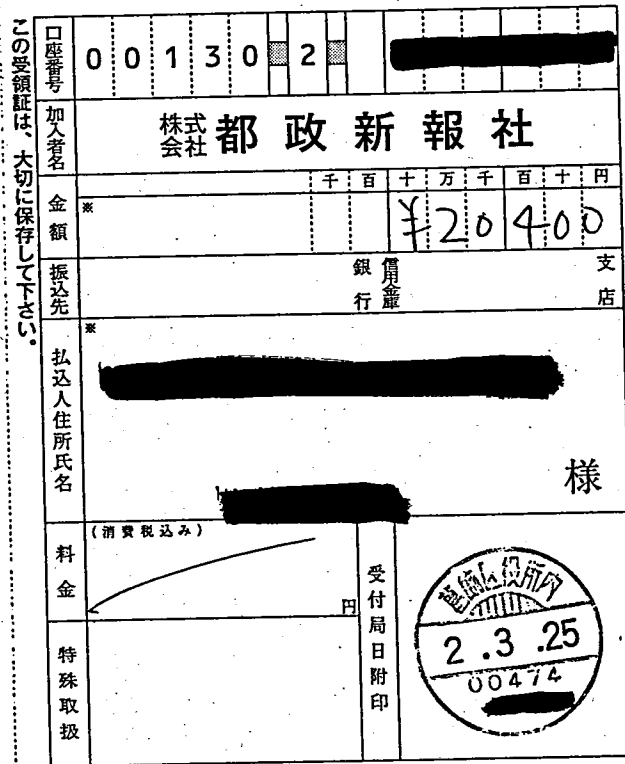 この受領証は、大切に保存して下さい。
口座番号 00130 2
加入者名 株式会社 都政新報社
金額 ※ 千百十万千百十円
¥20400
振込先 銀行 信用金庫 支店
払込人住所氏名 ※
様
料金 (消費税込み) 円
特殊取扱
受付局日附印
区役所内
2.3.25
00474